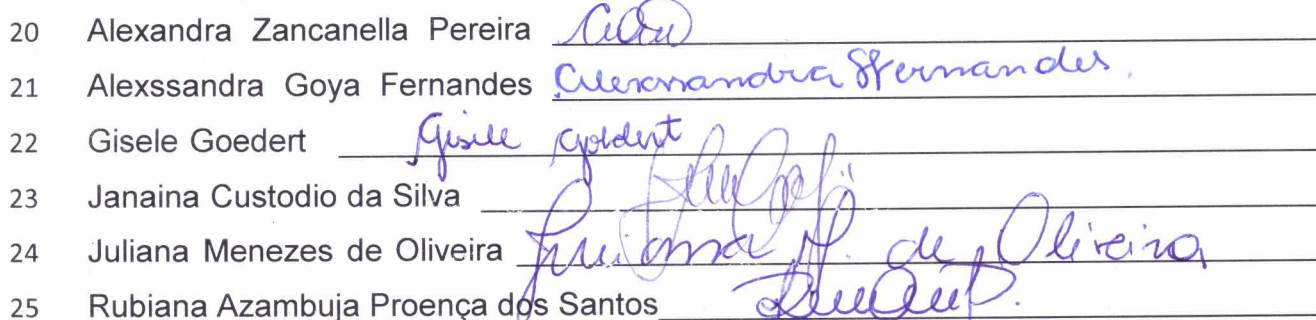 20 Alexandra Zancanella Pereira
21 Alexssandra Goya Fernandes Alexssandra Fernandes.
22 Gisele Goedert Gisele Goedert
23 Janaina Custodio da Silva
24 Juliana Menezes de Oliveira Juliana M. de Oliveira
25 Rubiana Azambuja Proença dos Santos